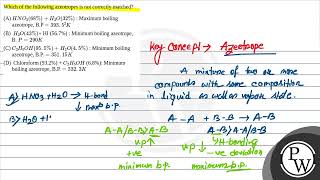 Which of the following azeotropes is not correctly matched?
(A) HNO₃(68%) + H₂O(32%) : Maximum boiling
azeotrope, B.P = 393. 5K
(B) H₂O(43%)+ HI (56.7%) : Minimum boiling azeotrope,
B. P = 290K
(C) C₂H₅OH(95. 5%) + H₂O(4. 5%) : Minimum boiling
azeotrope, B.P. = 351. 15K
(D) Chloroform (93.2%) + C₂H₅OH (6.8%): Minimum
boiling azeotrope, B.P. = 332. 3K
Key Concept → Azeotrope
A mixture of two or more
compounds with same composition
in liquid as well as vapour state.
A) HNO3 + H2O → H-bond
↓
max b.p.
B) H2O + H
A-A + B-B → A-B
A-A/B-B > A-B
A-B > A-A, B-B
vp↑
+ve
minimum b.p.
vp↓
H-bonding
-ve deviation
maximum b.p.
PW